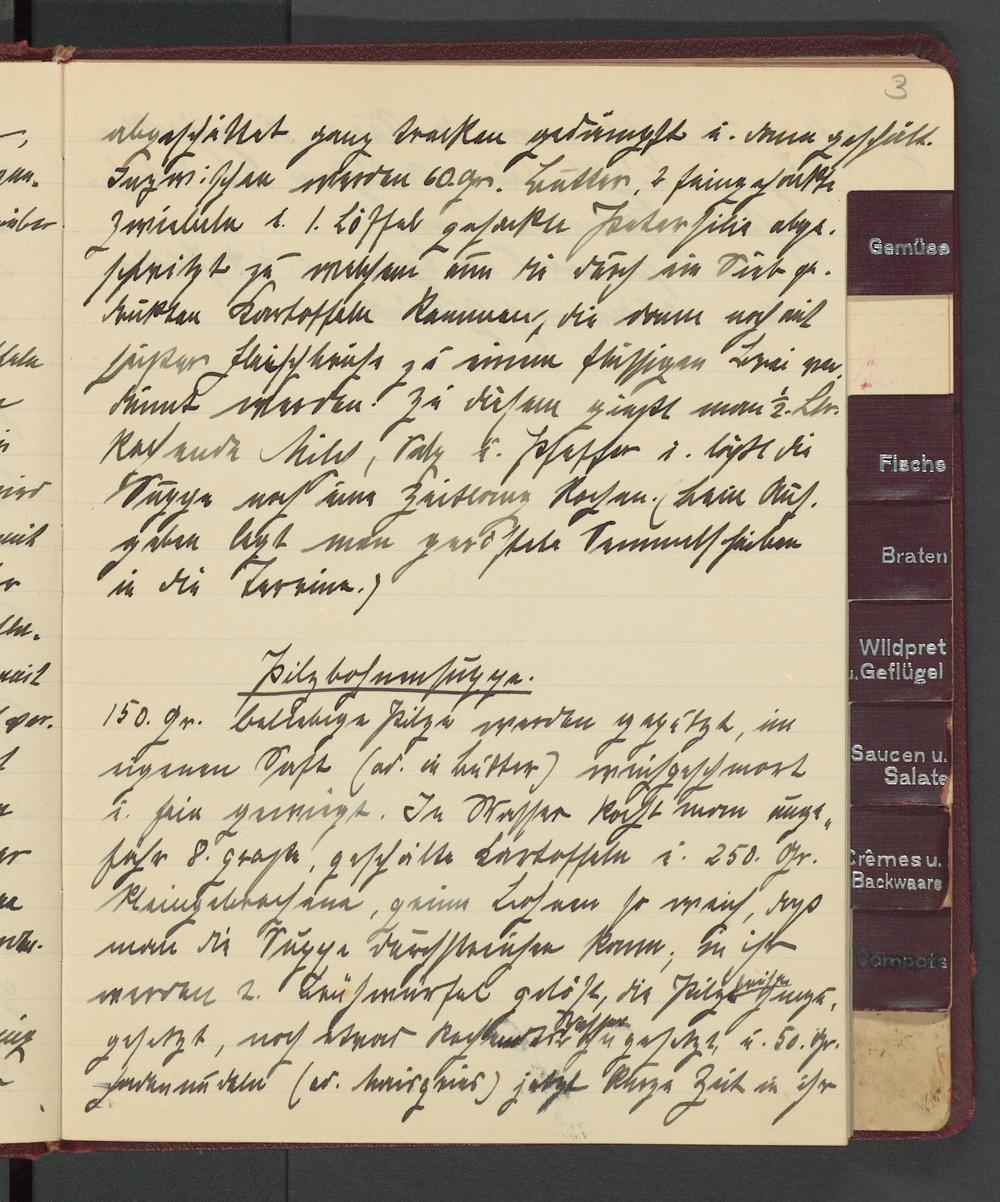 3
abgeschüttet ganz trocken gedämpft u. dann geschält.
Inzwischen werden 60. gr. Butter, 2 feingehackte
Zwiebeln u. 1. Löffel gehackte Petersilie abge-
schwitzt zu welchem nun die durch ein Sieb ge-
drückten Kartoffeln kommen, die dann noch mit
Fleischbrühe zu einem flüssigen Brei ver-
dünnt werden. Zu diesem gießt man ½. Ltr.
kochende Milch, Salz u. Pfeffer u. läßt die
Suppe noch eine Zeitlang kochen. (Beim Auf-
geben legt man geröstete Semmelscheiben
in die Terrine.)
Pilzbohnensuppe.
150. gr. beliebige Pilze werden geputzt, im
eigenen Saft (od. in Butter) weichgeschmort
u. fein gewiegt. In Wasser kocht man unge-
fähr 8. große, geschälte Kartoffeln u. 250. gr.
kleingebrochene, grüne Bohnen so weich, daß
man die Suppe durchstreichen kann; in ihr
werden 2. Brühwürfel gelöst, die Pilzbrühe hinzu-
gesetzt, noch etwas kochendes Wasser zugesetzt u. 50. gr.
Fadennudeln (od. Maisgries) jetzt kurze Zeit in ihr
Gemüse
Fische
Braten
Wildpret
u. Geflügel
Saucen u.
Salate
Crêmes u.
Backwaare
Compots